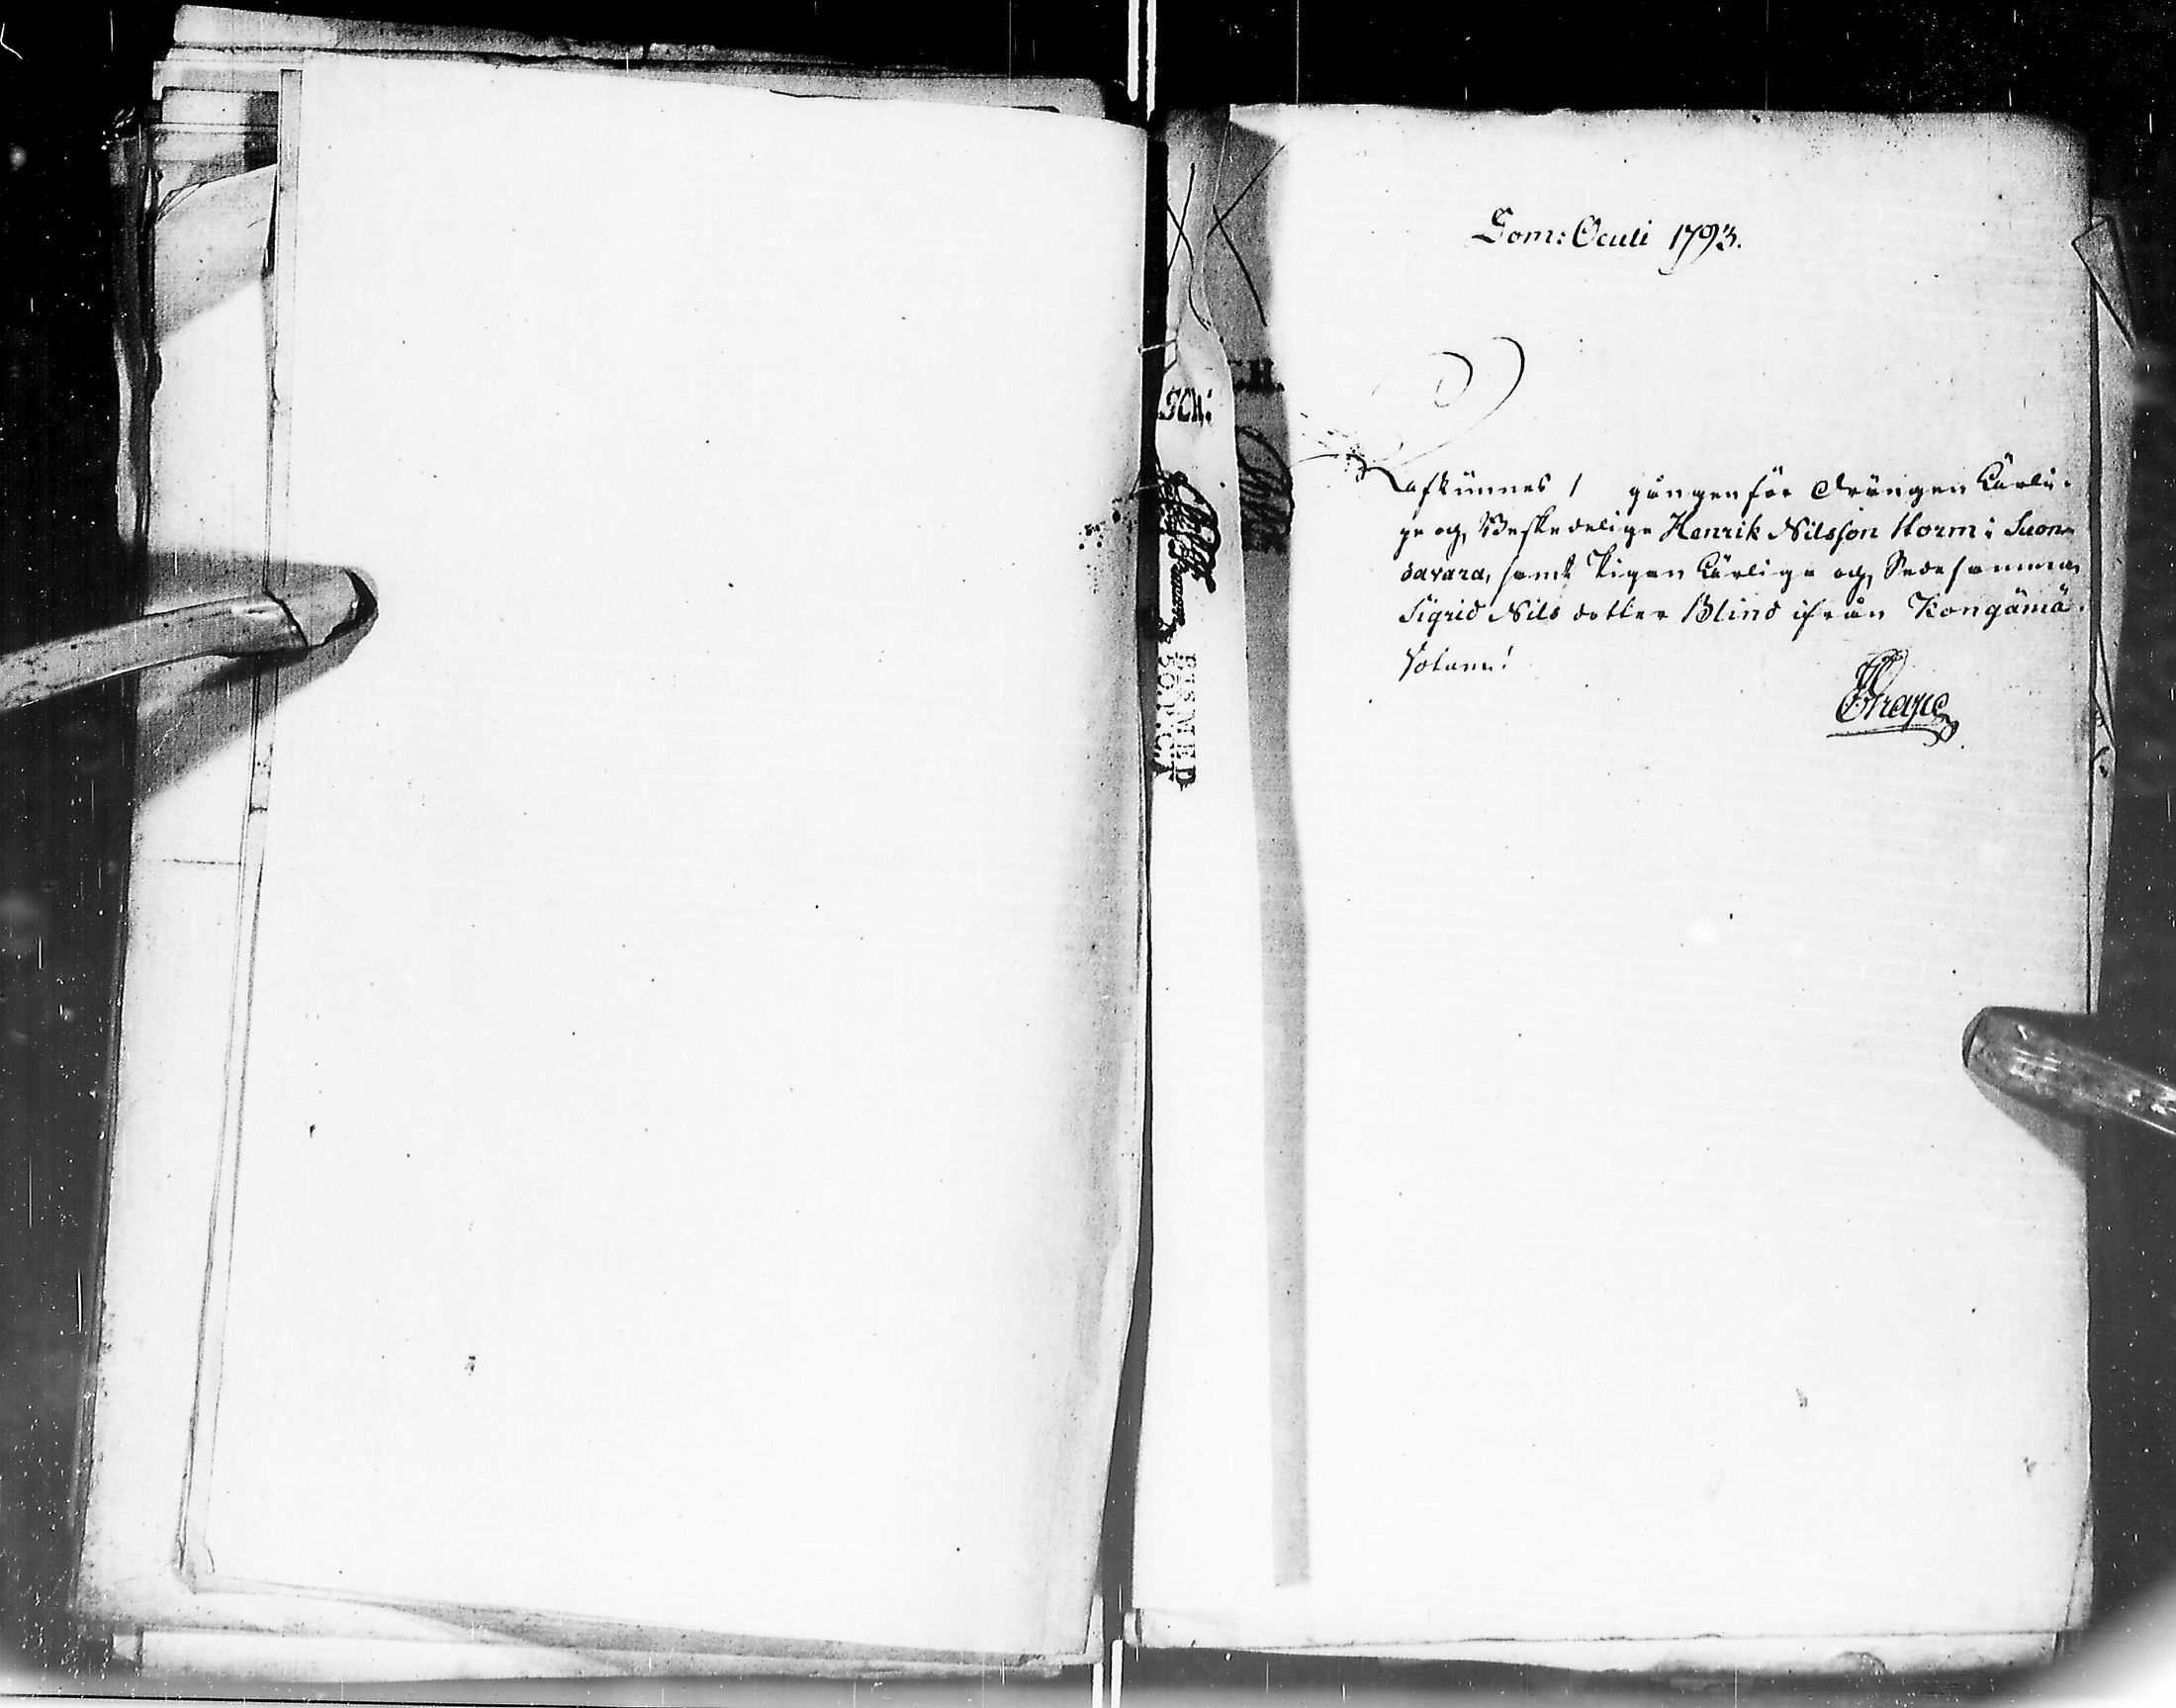 Dom: Oculi 1793.
afkünnes 1 gången för Drängen Ärli-
ge och Beskedelige Henrik Nilsson Horm i Suon-
davara, samt Pigan Ärliga och Sedesamma
Sigrid Nils dotter Blind ifrån Kongämä
SCH: